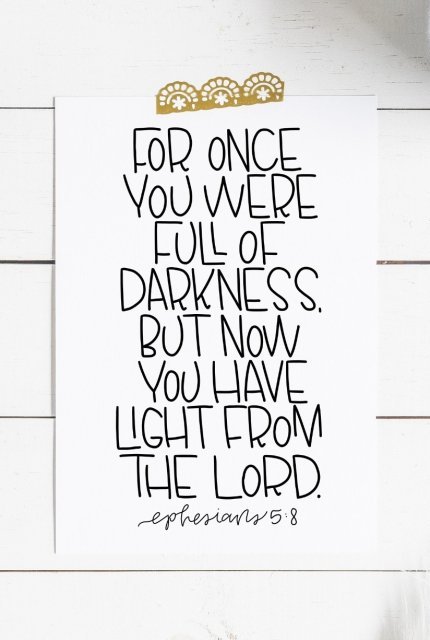 FOR ONCE
YOU WERE
FULL OF
DARKNESS,
BUT NOW
YOU HAVE
LIGHT FROM
THE LORD.
ephesians 5:8